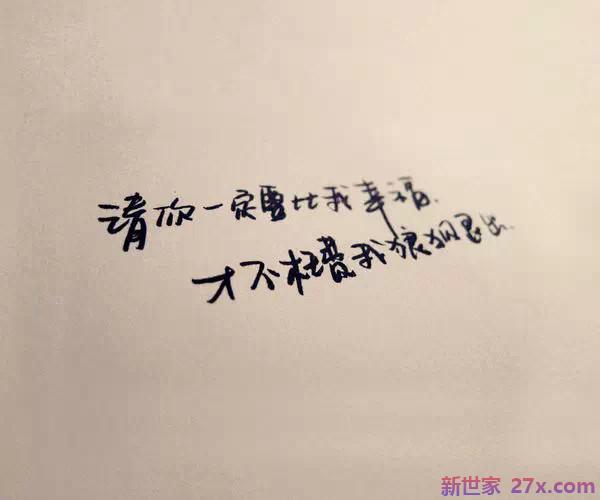 请你一定要比我幸福.
才不枉费我狼狈退出.
新世家 27x.com